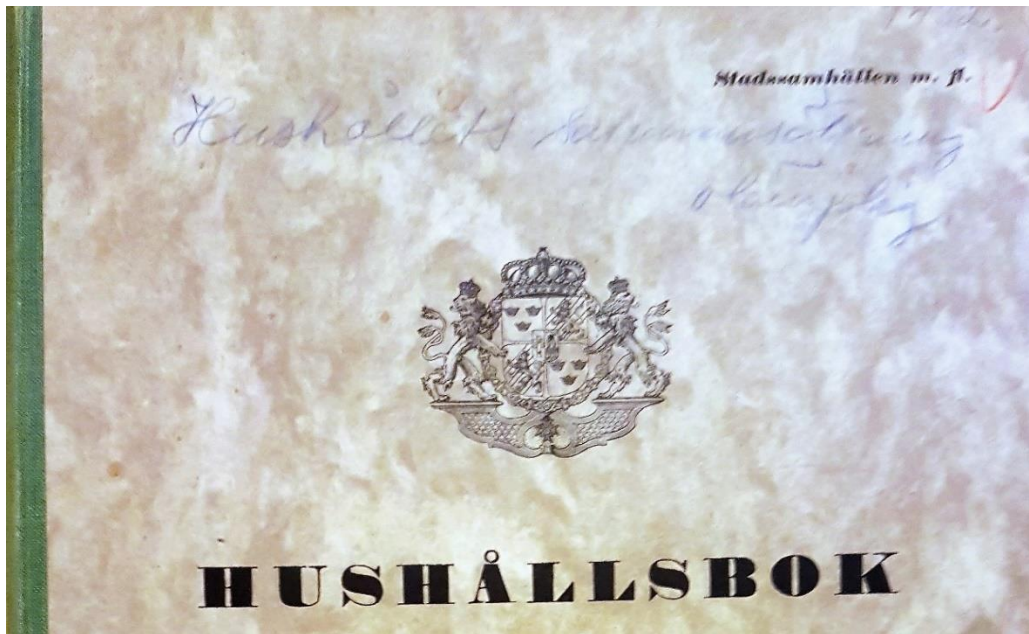 Stadssamhällen m. fl.
Hushållets sammansättning
HUSHÅLLSBOK